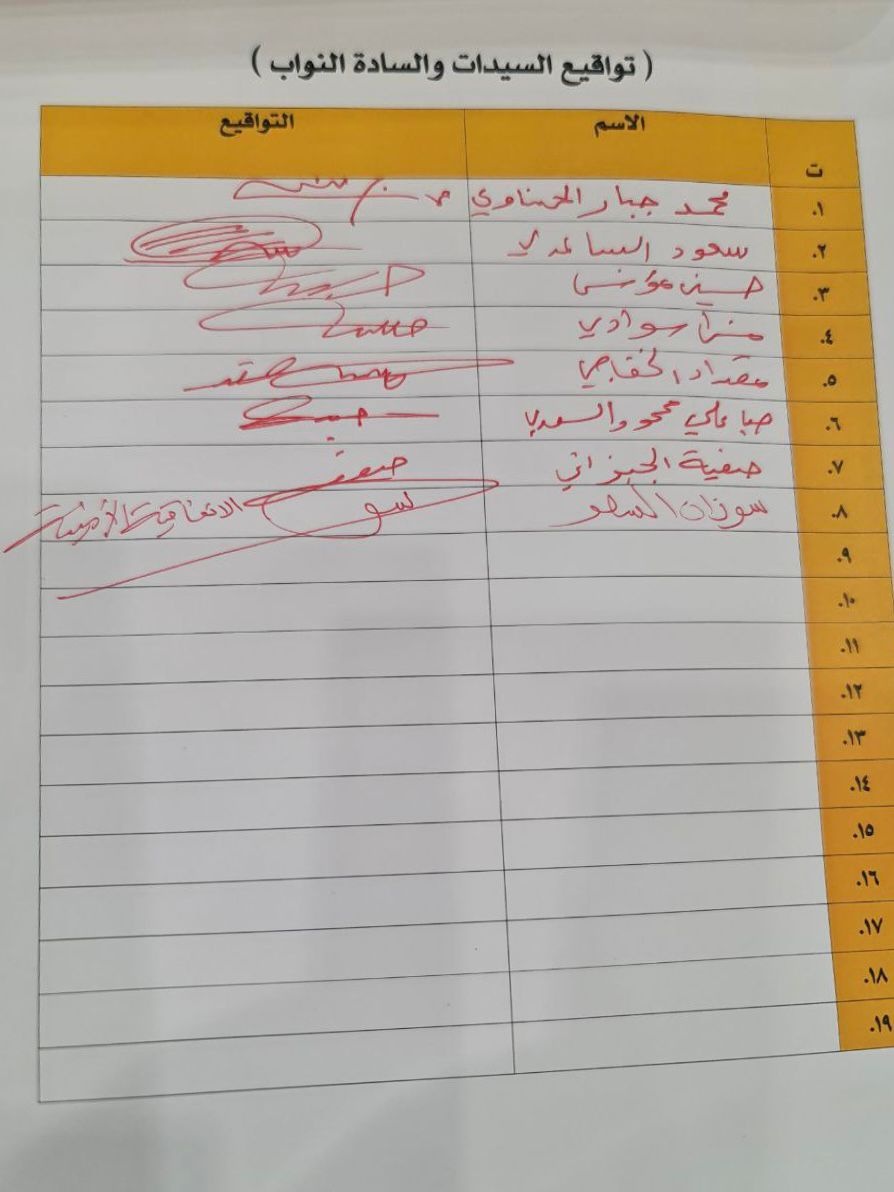 ( تواقيع السيدات والسادة النواب )
ت الاسم التواقيع
١. محمد جبار الحسناوي
٢. سعود الساعدي
٣. حسين مؤنس
٤. سوادي
٥. مقداد الخفاجي
٦. صبا علي محمود السعدي
٧. صفية الجيزاني
٨. سوزان
٩.
١٠.
١١.
١٢.
١٣.
١٤.
١٥.
١٦.
١٧.
١٨.
١٩.